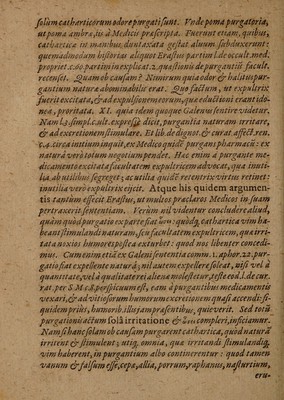 solùm catharticorum odore purgati sunt. Vnde poma purgatoria,
ut poma ambra, iis à Medicis præscripta. Fuerunt etiam, quibus,
cathartica in manibus duntaxat gestat aluum subduxerunt:
quemadmodum historias aliquot Erastus partim l. de occult. med.
propriet. c. 60. partim in explicat. 2. quæstionis de purgantiū facult.
recenset. Quam ob causam? Nimirum quia odor & halitus pur-
gantium naturæ abominabilis erat. Quo factum, ut expultrix
fuerit excitata, & ad expulsionem eorum, quæ eductioni erant ido-
nea, proritata. XI. quia idem quoque Galenus sentire videtur.
Nam l. 3. simpl. c. ult. expressè dicit, purgantia naturam irritare,
& ad excretionem stimulare. Et lib. de dignot. & curat. affect. ren.
c. 4. circa initium inquit, ex Medico quidẽ purgans pharmacũ: ex
natura verò totum negotium pendet. Hæc enim à purgante me-
dicamento excitata facultatem expultricem aduocat, quæ inuti-
lia, ab utilibus segregat; ac utilia quidẽ retentrix vis intus retinet:
inutilia verò expultrix ejicit. Atque his quidem argumen-
tis tantùm effecit Erastus, ut multos præclaros Medicos in suam
pertraxerit sententiam. Verùm nil videntur concludere aliud,
quàm quòd purgatio ex parte fiat ἔσω: quòdq; cathartica vim ha-
beant stimulandi naturam, seu facultatem expultricem, quæ irri-
tata noxios humores postea exturbet: quod nos libenter concedi-
mus. Cum enim etiã ex Galeni sententia comm. 1. aphor. 22. pur-
gatio fiat expellente natura; nil autem expellere soleat, nisi vel à
quantitate, vel à qualitate rei alienæ molestetur, teste eod. l. de cur.
rat. per S. M. c. 8. perspicuum est, eam à purgantibus medicamentis
vexari, & ad vitiosorum humorum excretionem quasi accendi: si-
quidem priùs, humorib. illis iam præsentibus, quieverit. Sed totũ
purgationis actum solâ irritatione & compleri, inficiamur.
Nam si hanc solam ob causam purgarent cathartica, quòd naturā
irritent & stimulent; utiq; omnia, quæ irritandi stimulandiq;
vim haberent, in purgantium albo continerentur: quod tamen
vanum & falsum esse, cepa, allia, porrum, raphanus, nasturtium,
eru-